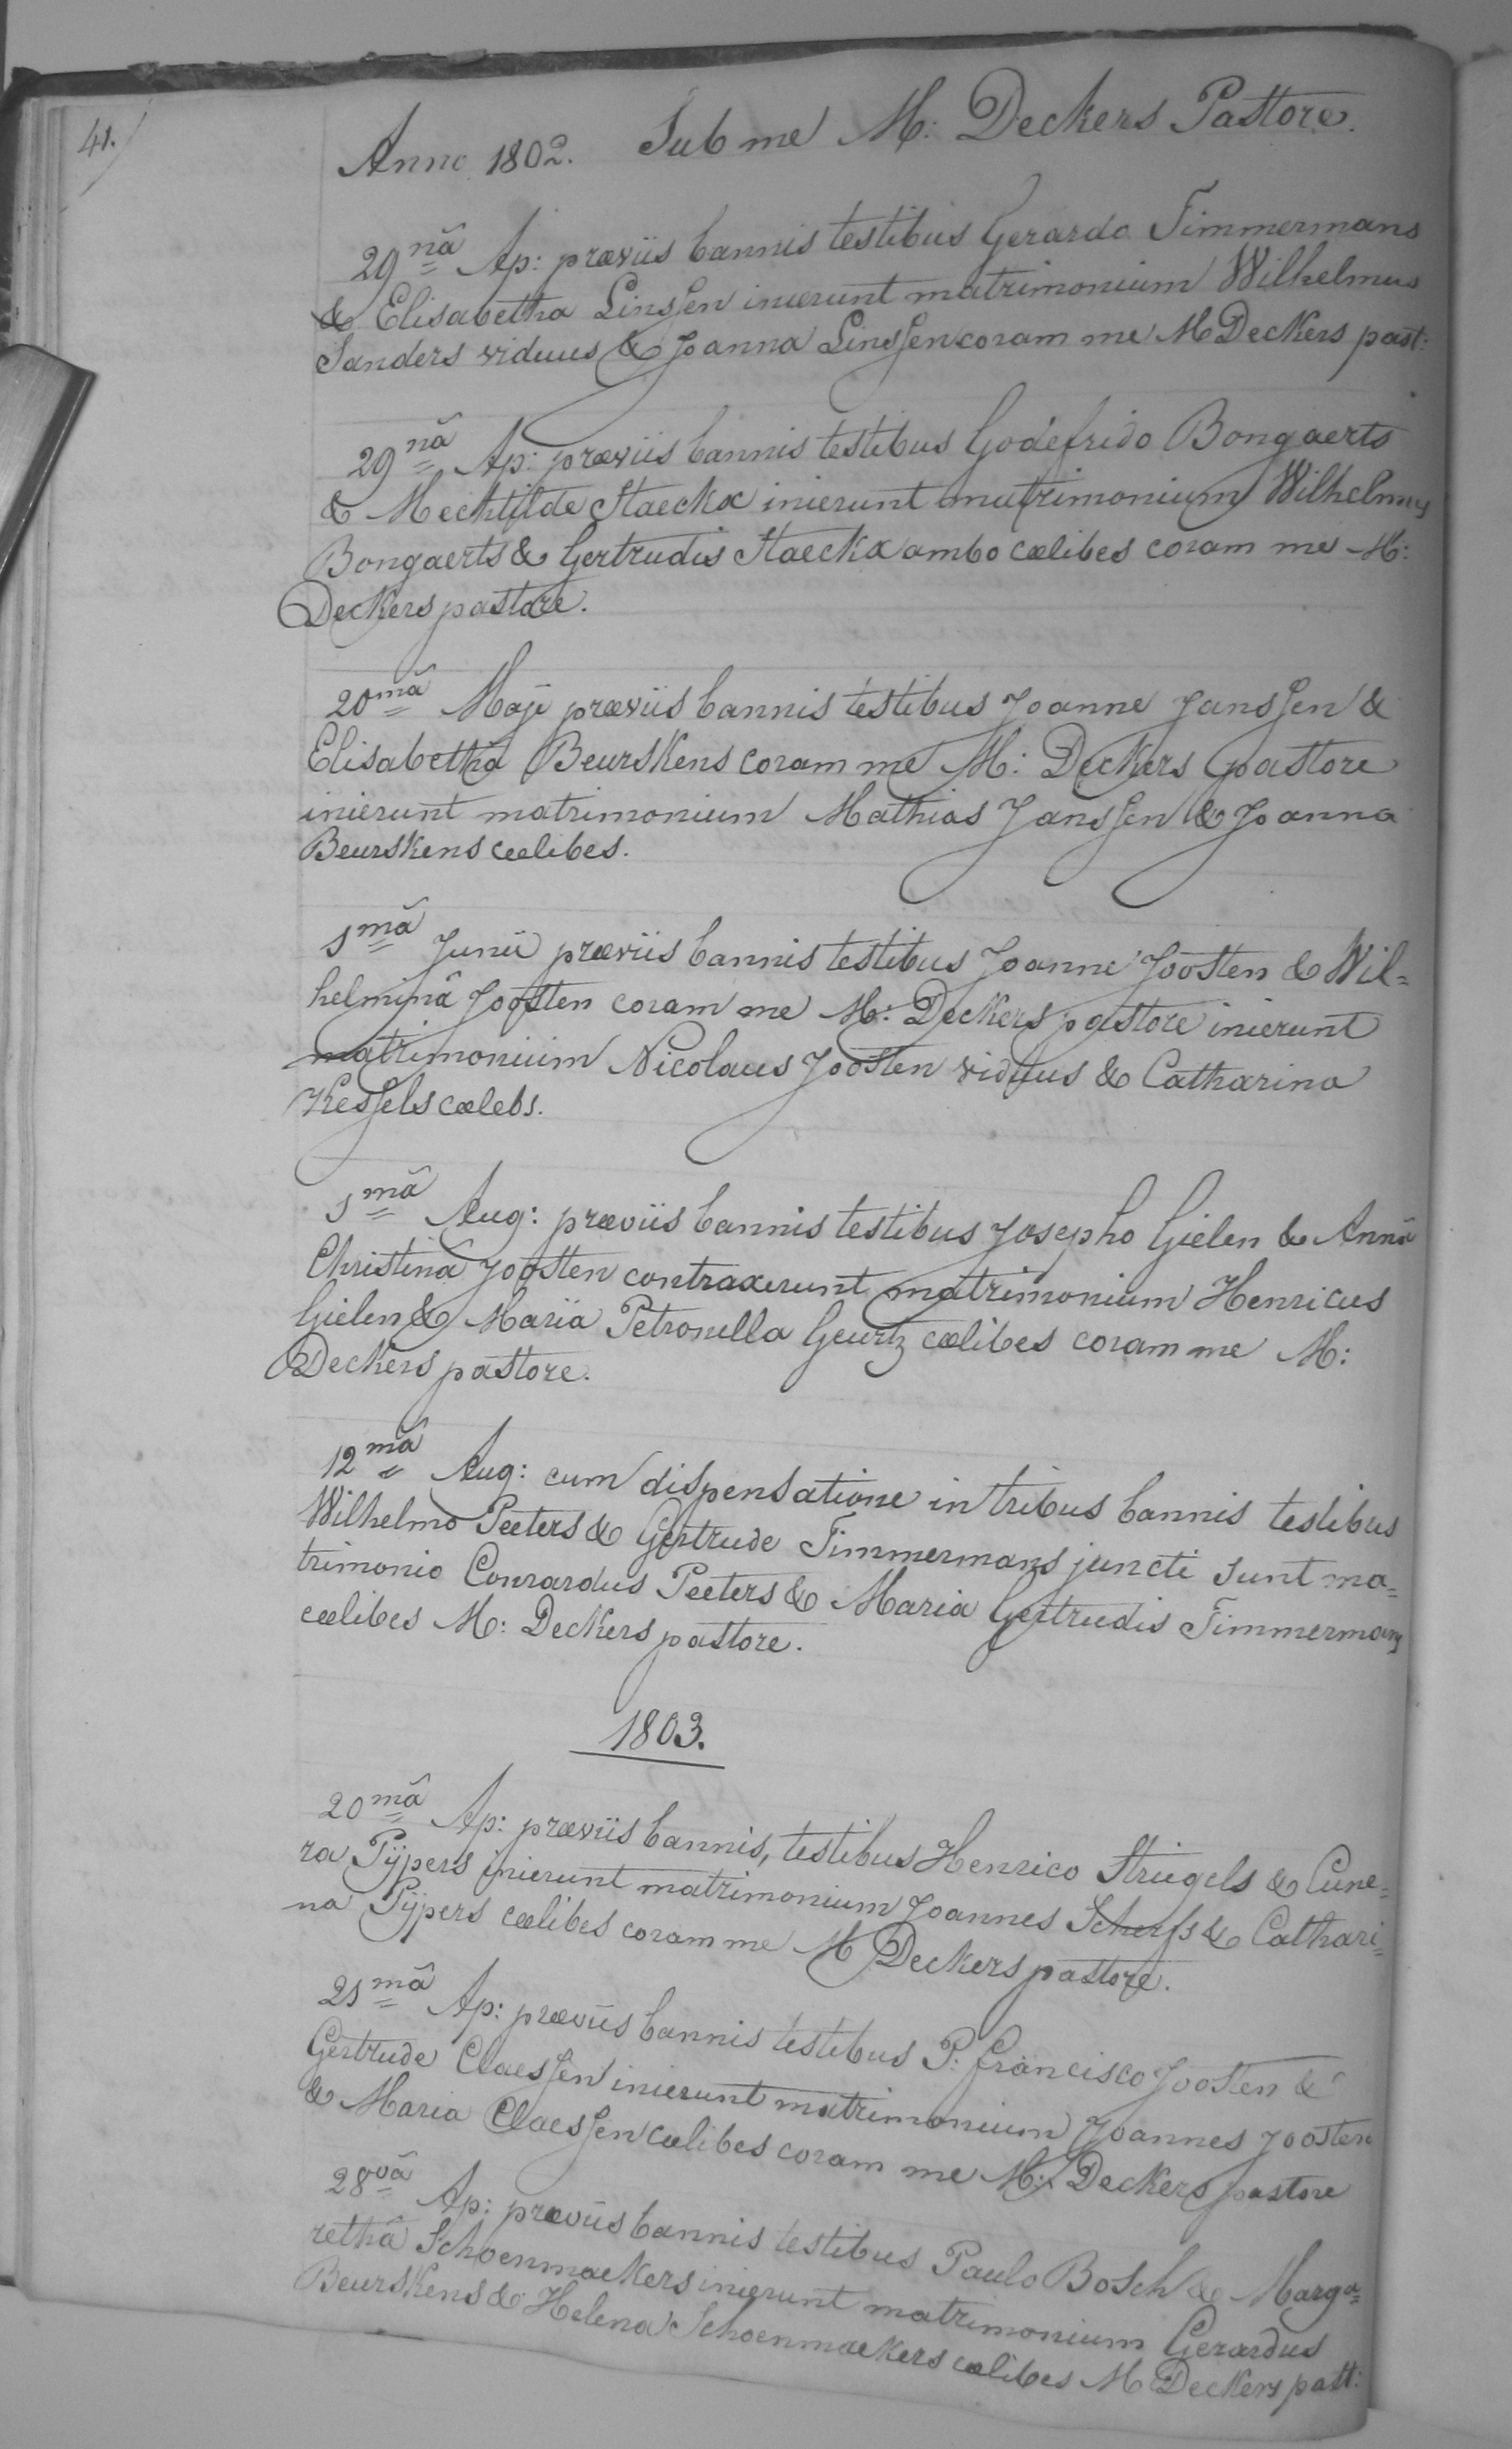 41.
Anno 1802. Sub me M: Deckers Pastore.
29nâ Ap: præviis bannis testibus Gerardo Timmermans
& Elisabetha Linssen inierunt matrimonium Wilhelmus
Sanders viduus & Joanna Linssen coram me M Deckers past:
29nâ Ap: præviis bannis testibus Godefrido Bongaerts
& Mechtilde Staeckx inierunt matrimonium Wilhelmus
Bongaerts & Gertrudis Staeckx ambo cælibes coram me M:
Deckers pastore.
20mâ Maji præviis bannis testibus Joanne Janssen &
Elisabethâ Beurskens coram me M: Deckers pastore
inierunt matrimonium Mathias Janssen & Joanna
Beurskens cælibes.
1mâ Junii præviis bannis testibus Joanne Joosten & Wil=
helminâ Joosten coram me M: Deckers pastore inierunt
matrimonium Nicolaus Joosten viduus & Catharina
Kessels cælebs.
1mâ Aug: præviis bannis testibus Josepho Gielen & Annâ
Christinâ Joosten contraxerunt matrimonium Henricus
Gielen & Maria Petronella Geurtz cælibes coram me M:
Deckers pastore.
12mâ Aug: cum dispensatione in tribus bannis testibus
Wilhelmo Peeters & Gertrude Timmermans juncti sunt ma=
trimonio Conrardus Peeters & Maria Gertrudis Timmermans
cælibes M: Deckers pastore.
1803.
20mâ Ap: præviis bannis, testibus Henrico Striegels & Cune=
ra Pÿpers inierunt matrimonium Joannes Scherfs & Cathari=
na Pÿpers cælibes coram me M Deckers pastore.
21mâ Ap: præviis bannis testibus P: Francisco Joosten &
Gertrude Claessen inierunt matrimonium Joannes Joosten
& Maria Claessen cælibes coram me M: Deckers pastore
28vâ Ap: præviis bannis testibus Paulo Bosch & Marga=
rethâ Schoenmaekers inierunt matrimonium Gerardus
Beurskens & Helena Schoenmaekers cælibes M Deckers past: